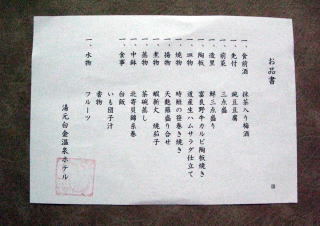 お品書
一、食前酒　抹茶入り梅酒
一、先付　豌豆豆腐
一、前菜　三点盛
一、造里　鮮三点盛り
一、陶板　富良野牛カルビ陶板焼き
一、皿物　道産生ハムサラダ仕立て
一、焼物　時鮭の笹巻き焼き
一、揚物　天麩羅盛り合せ
一、煮物　蝦新丈　焼茄子
一、蒸物　茶碗蒸し
一、中鉢　北寄貝錦糸巻
一、食事　白飯
いも団子汁
香物
一、水物　フルーツ
湯元白金温泉ホテル